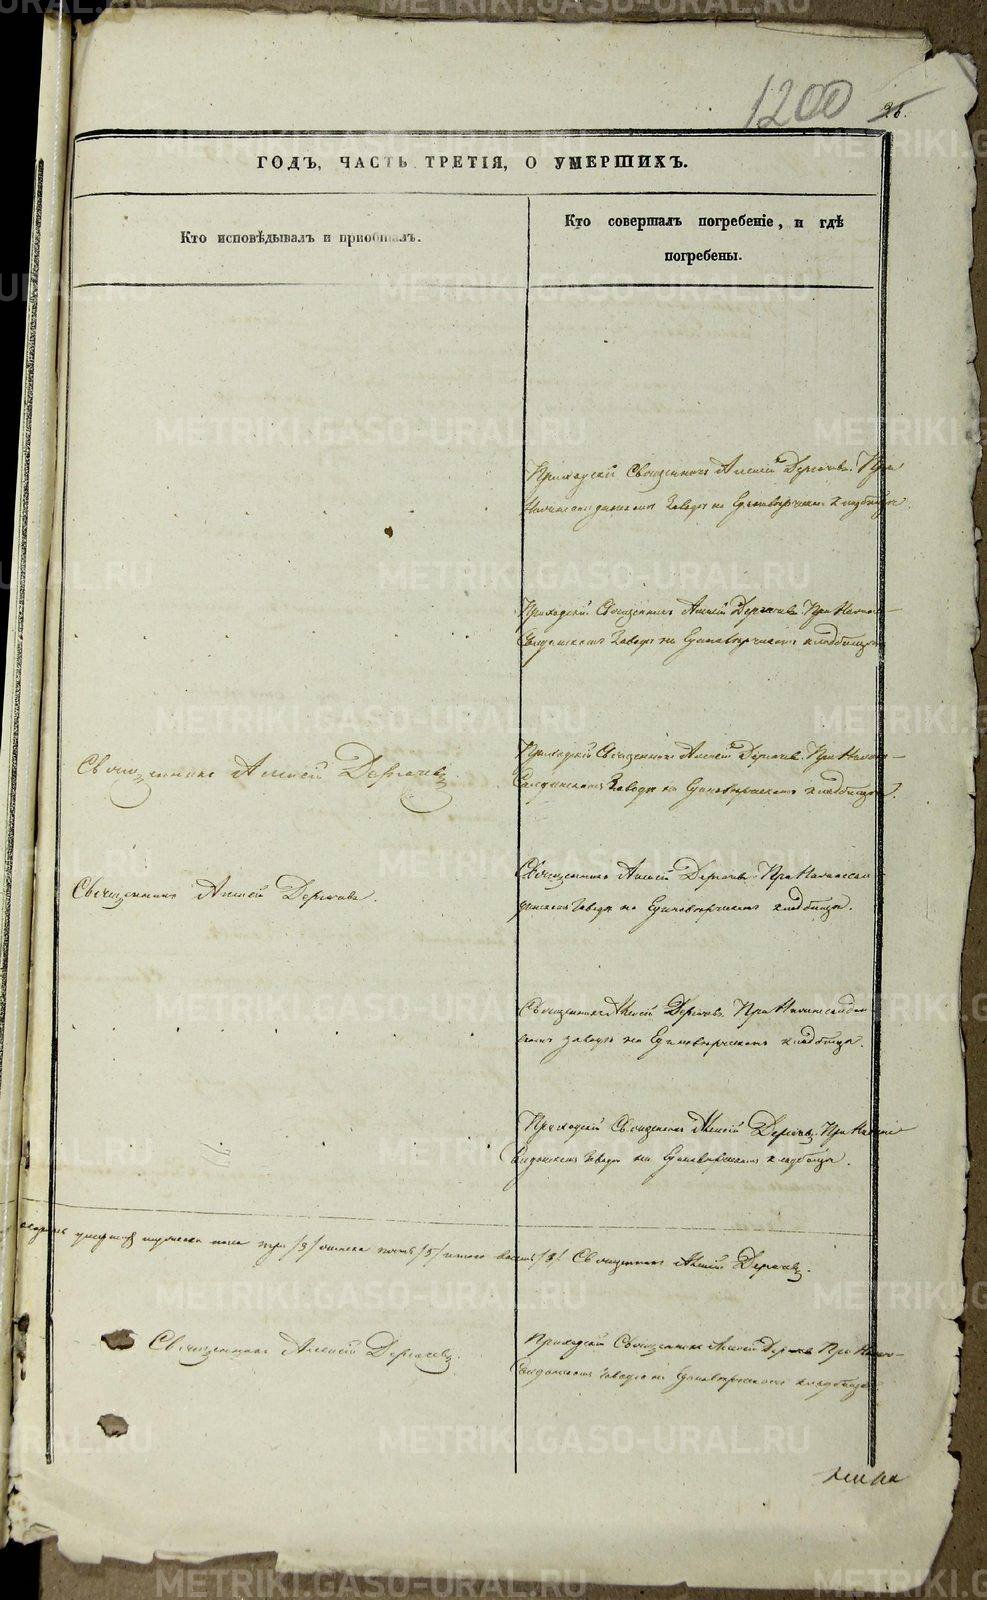 1200
26.
ГОДЪ, ЧАСТЬ ТРЕТІЯ, О УМЕРШИХЪ.
Кто исповѣдывалъ и приобщалъ.
Кто совершалъ погребеніе, и гдѣ
погребены.
Приходскій Священникъ Алексій Дергачевъ. При
заводѣ на Единовѣрческомъ кладбищѣ
Приходскій Священникъ Алексій Дергачевъ При Нижне-
Салдинскомъ Заводѣ на Единовѣрческомъ кладбищѣ
Священникъ Алексій Дергачевъ.
Приходскій Священникъ Алексій Дергачевъ При Нижне-
Салдинскомъ Заводѣ на Единовѣрческомъ кладбищѣ.
Священникъ Алексій Дергачевъ.
Священникъ Алексій Дергачевъ При Нижнесал-
динскомъ заводѣ на Единовѣрческомъ кладбищѣ.
Священникъ Алексій Дергачевъ. При Нижнесалдин-
скомъ заводѣ на Единовѣрческомъ кладбищѣ.
Приходскій Священникъ Алексій Дергачевъ При Нижне
Салдинскомъ заводѣ на Единовѣрческомъ кладбищѣ.
умершихъ мужеска пола три /3/ женска пять /5/ итого восемь /8/ Священникъ Алексій Дергачевъ.
Священникъ Алексій Дергачевъ.
Приходскій Священникъ Алексій Дергачевъ При Нижне-
Салдинскомъ заводѣ на Единовѣрческомъ кладбищѣ
METRIKI.GASO-URAL.RU